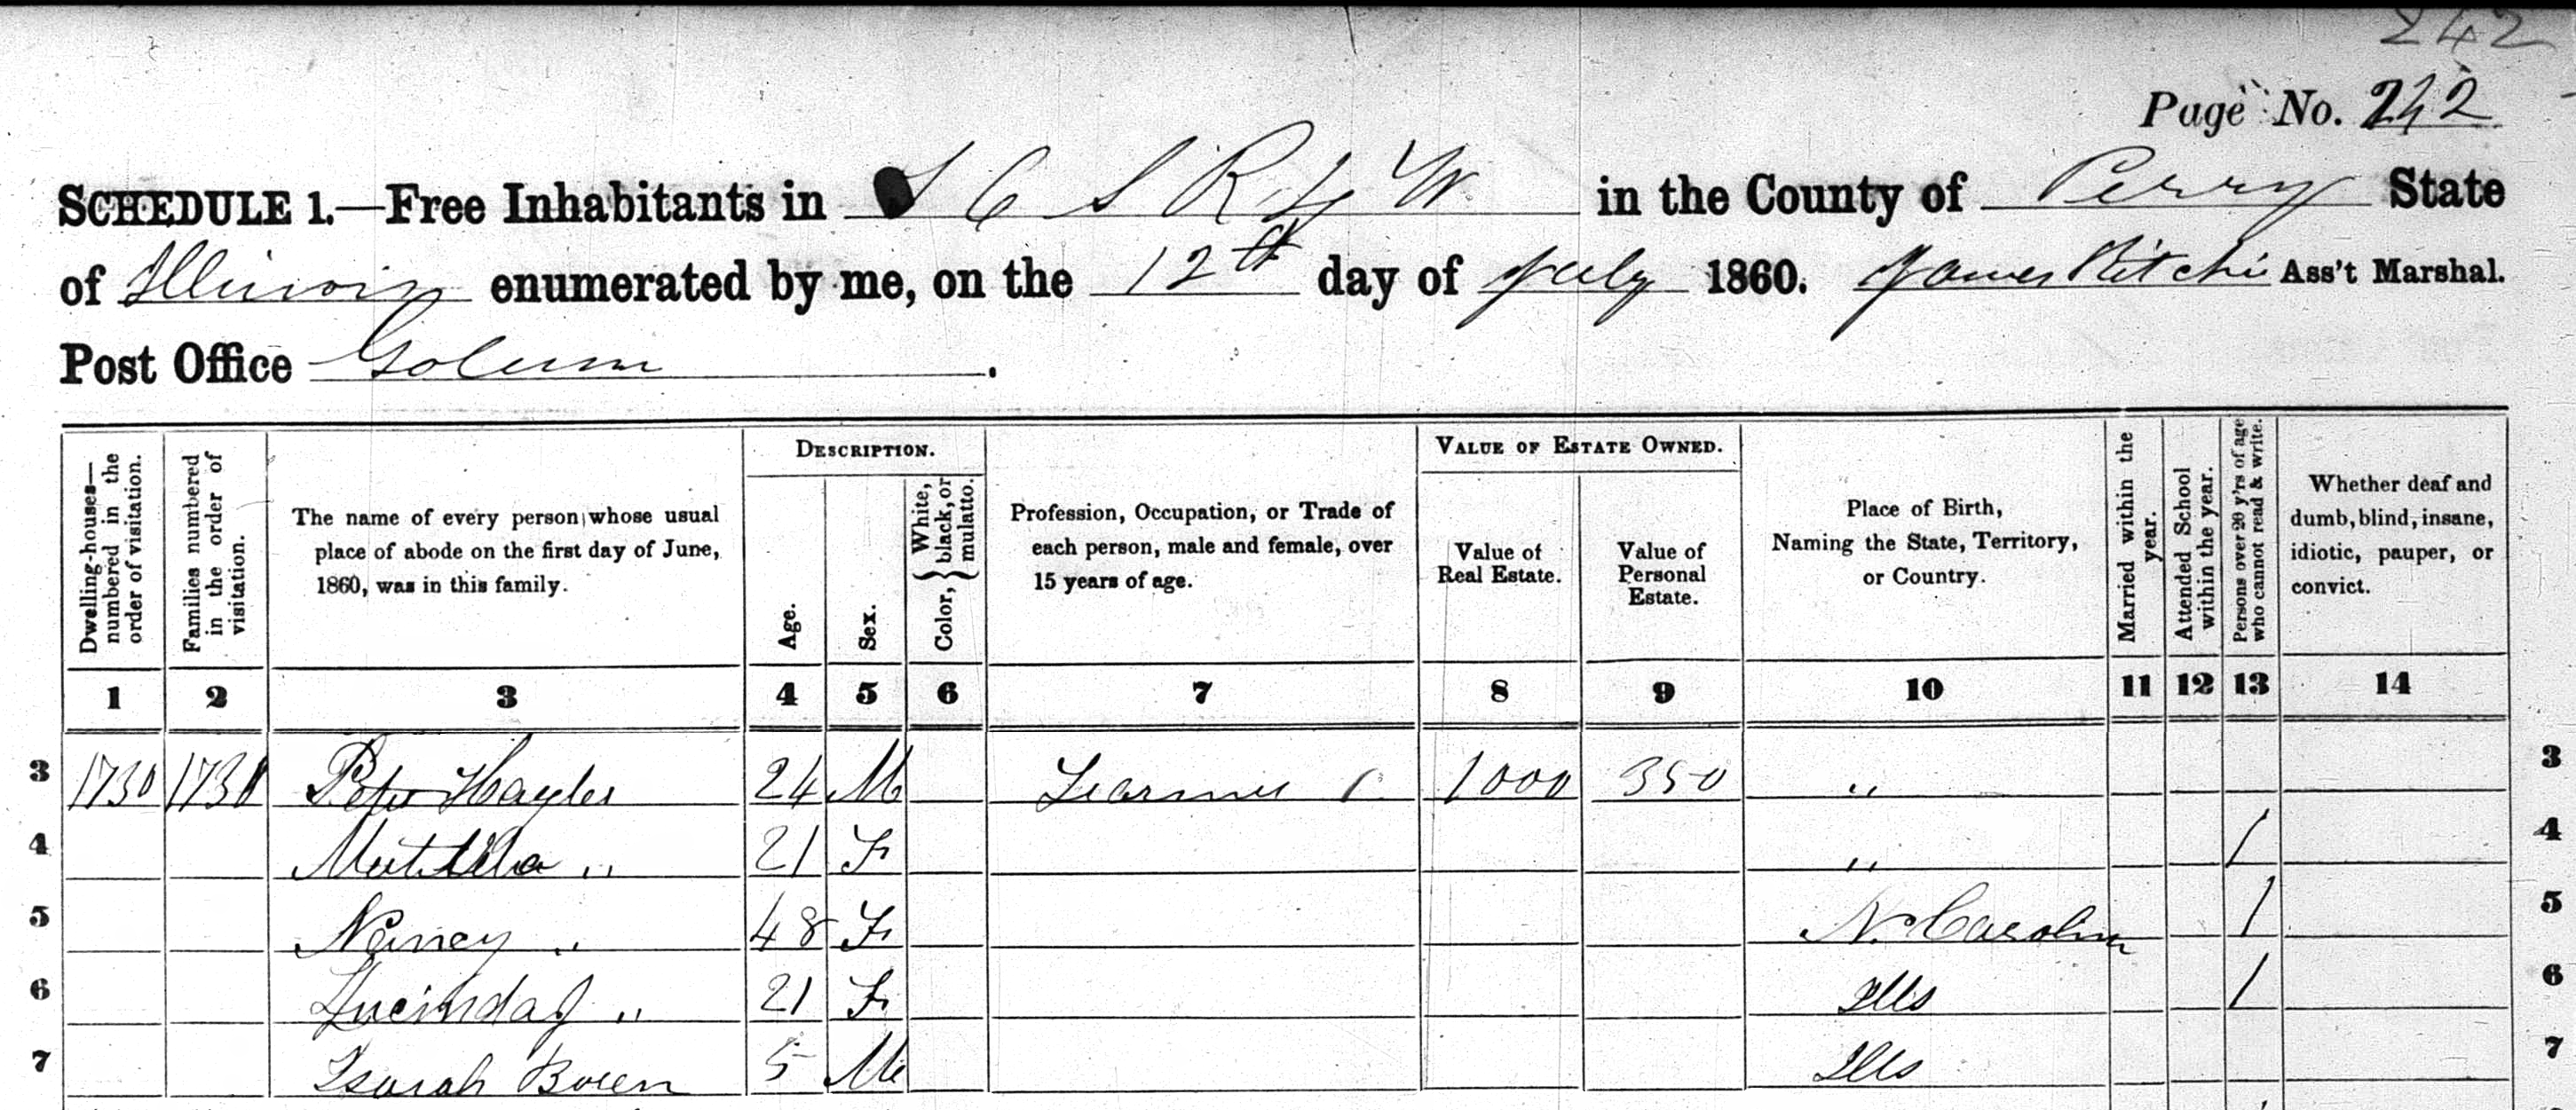 242
Page No. 242
SCHEDULE 1.—Free Inhabitants in T 6 S R 4 W. in the County of Perry State
of Illinois enumerated by me, on the 12th day of July 1860. James Ritchie Ass't Marshal.
Post Office Golum.
Dwelling-houses—numbered in the order of visitation.
Families numbered in the order of visitation.
The name of every person whose usual
place of abode on the first day of June,
1860, was in this family.
DESCRIPTION.
Age.
Sex.
Color, { White, black, or mulatto.
Profession, Occupation, or Trade of
each person, male and female, over
15 years of age.
VALUE OF ESTATE OWNED.
Value of
Real Estate.
Value of
Personal
Estate.
Place of Birth,
Naming the State, Territory,
or Country.
Married within the year.
Attended School within the year.
Persons over 20 y'rs of age who cannot read & write.
Whether deaf and
dumb, blind, insane,
idiotic, pauper, or
convict.
1 2 3 4 5 6 7 8 9 10 11 12 13 14
3 1730 1730 Peter Hayles 24 M Farmer 1000 350 " 3
4 Matilda " 21 F " / 4
5 Nancy " 48 F N. Carolina / 5
6 Lucinda J " 21 F Ills / 6
7 Isarah Bowen 5 M Ills 7